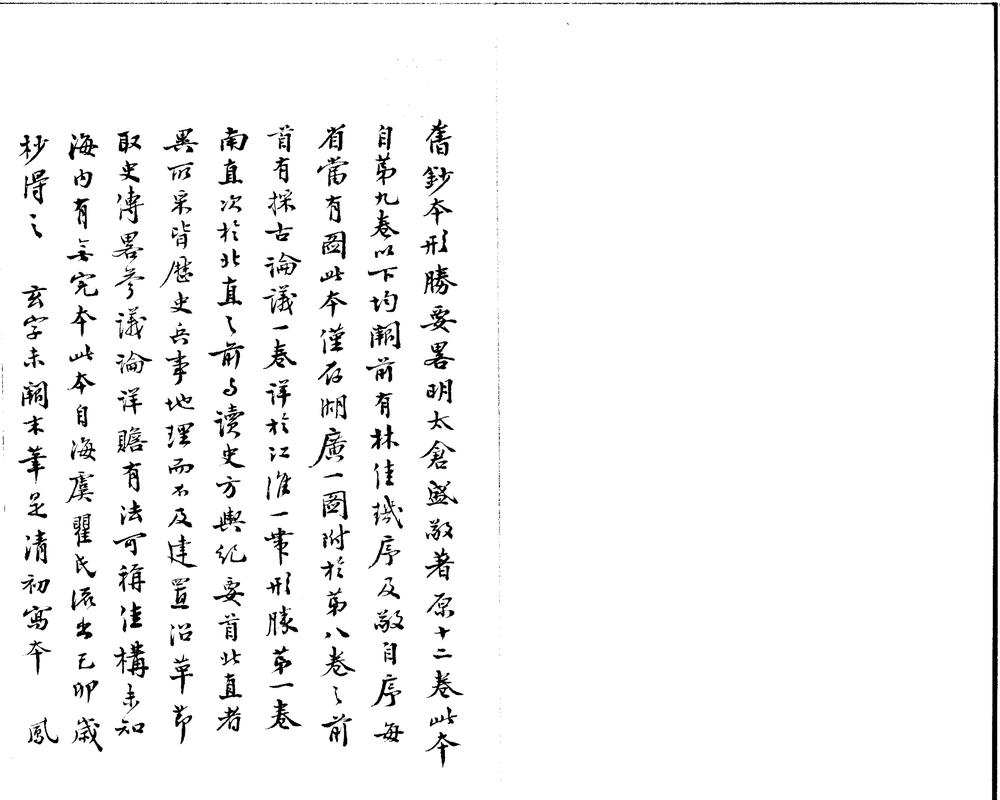 舊鈔本形勝要畧明太倉盛敬著原十二卷此本
自第九卷以下均闕前有林佳璣序及敬自序每
省當有圖此本僅存湖廣一圖附於第八卷之前
首有採古論議一卷詳於江淮一帶形勝第一卷
南直次於北直之前与讀史方輿紀要首北直者
異所采皆歷史兵事地理而不及建置沿革節
取史傳畧參議論詳贍有法可稱佳構未知
海内有無完本此本自海虞瞿氏流出己卯歲
杪得之 玄字未闕末筆是清初寫本 鳳